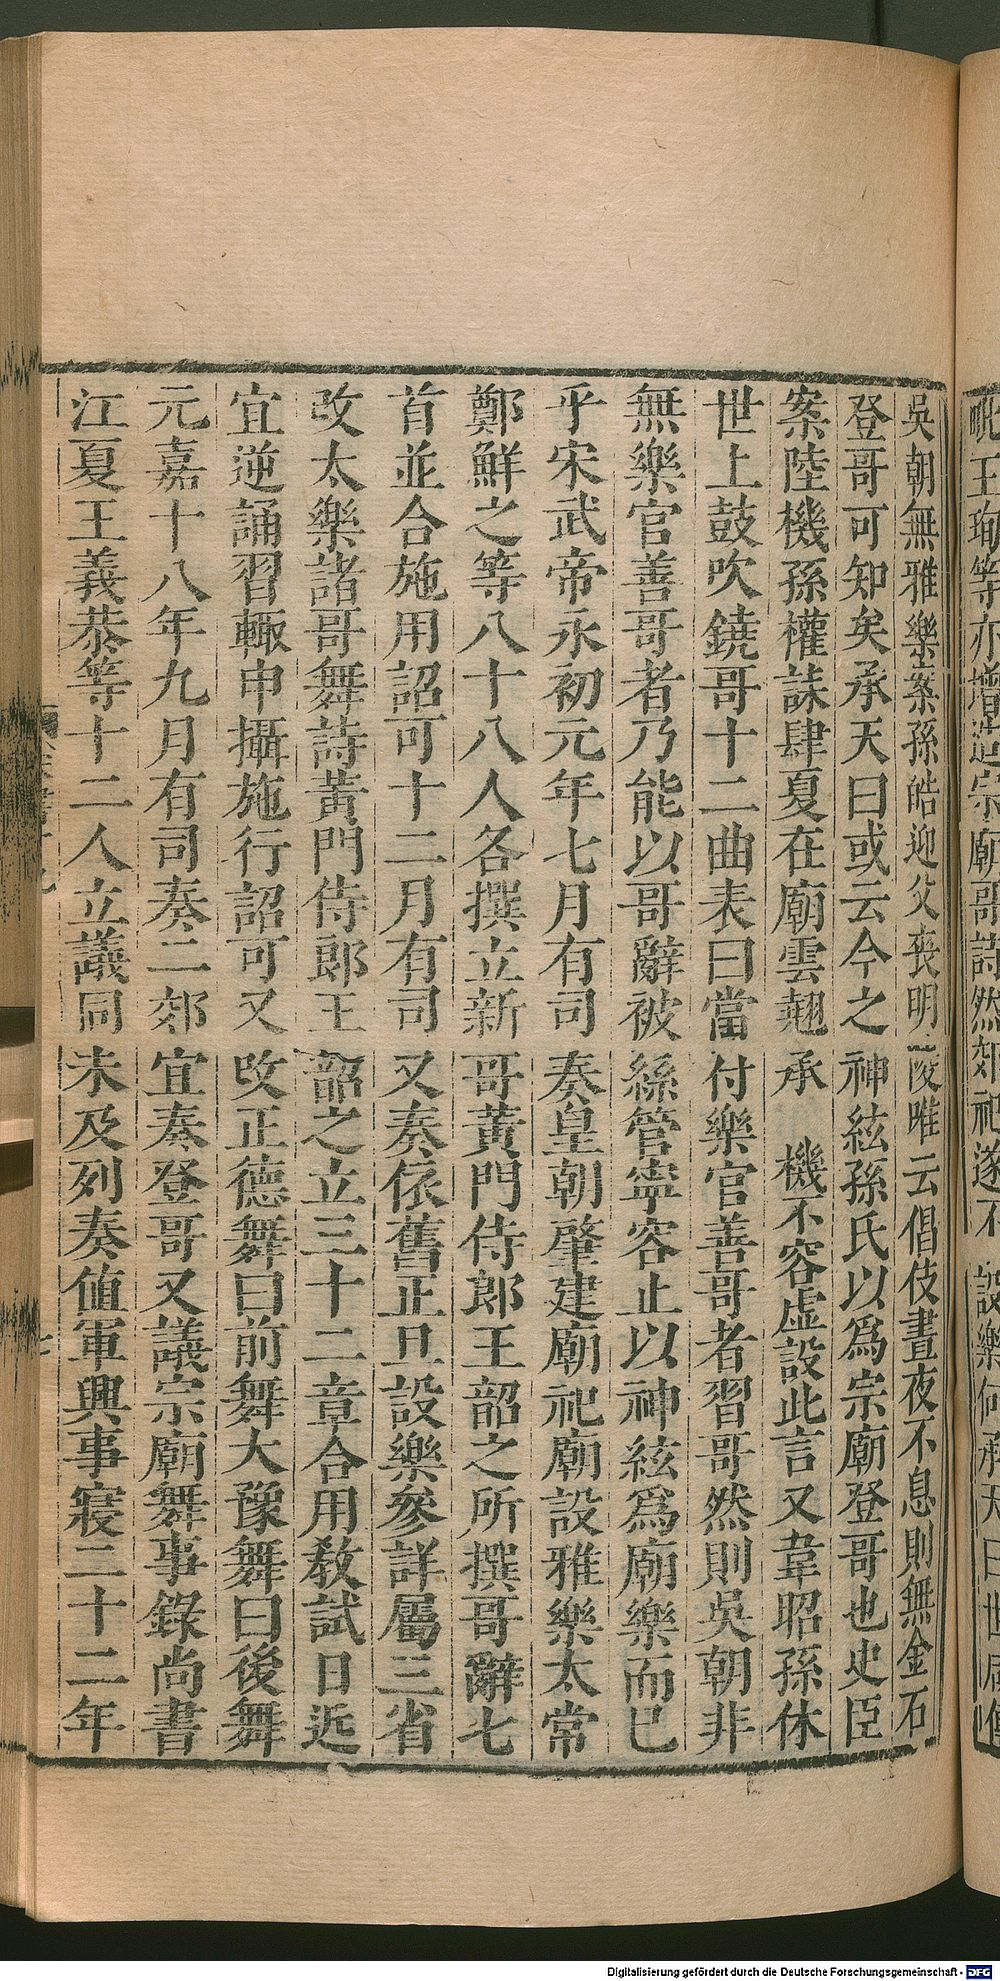 吳朝無雅樂案孫皓迎父喪明陵唯云倡伎晝夜不息則無金石
登哥可知矣承天曰或云今之神絃孫氏以爲宗廟登哥也史臣
案陸機孫權誄肆夏在廟雲翹承 機不容虛設此言又韋昭孫休
世上鼓吹鐃哥十二曲表曰當付樂官善哥者習哥然則吳朝非
無樂官善哥者乃能以哥辭被絲管寧容止以神絃爲廟樂而已
乎宋武帝永初元年七月有司奏皇朝肇建廟祀廟設雅樂太常
鄭鮮之等八十八人各撰立新哥黃門侍郎王韶之所撰哥辭七
首並合施用詔可十二月有司又奏依舊正旦設樂參詳屬三省
改太樂諸哥舞詩黃門侍郎王韶之立三十二章合用敎試日近
宜逆誦習輙申攝施行詔可又改正德舞曰前舞大豫舞曰後舞
元嘉十八年九月有司奏二郊宜奏登哥又議宗廟舞事錄尚書
江夏王義恭等十二人立議同未及列奏値軍興事寢二十二年
Digitalisierung gefördert durch die Deutsche Forschungsgemeinschaft - DFG